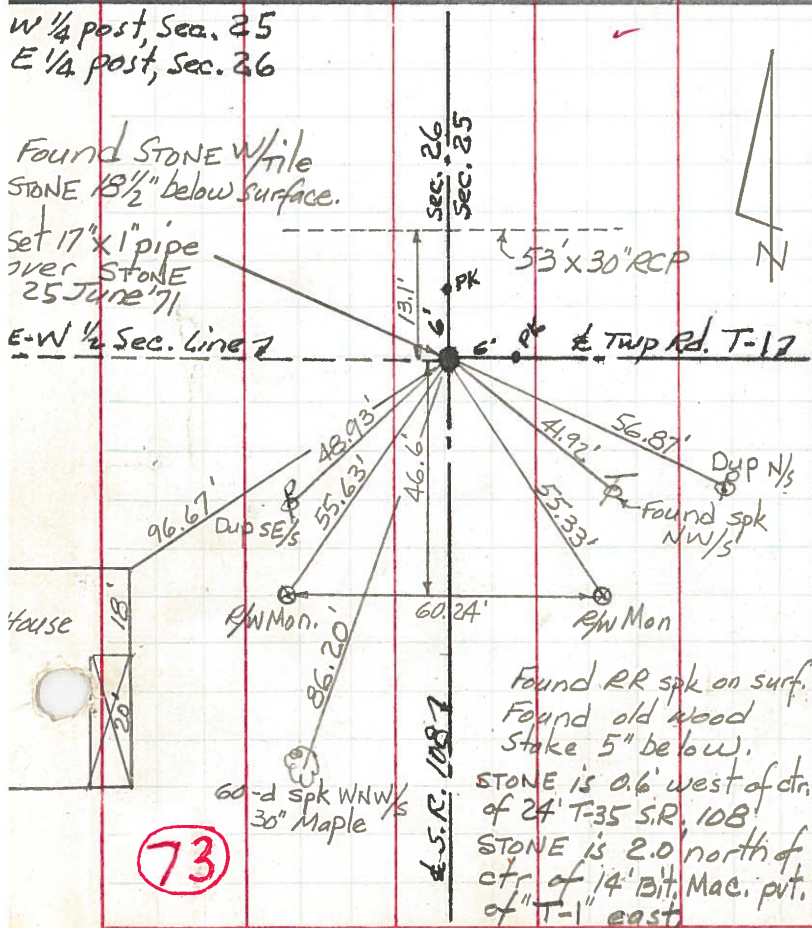 W 1/4 post, Sec. 25
E 1/4 post, Sec. 26
Found STONE W/tile
STONE 18 1/2" below surface.
Set 17" x 1" pipe
over STONE
25 June '71
Sec. 26
Sec. 25
53' x 30" RCP
N
13.1'
PK
6'
6'
PK
E-W 1/2 Sec. Line
℄ Twp Rd. T-1
48.93'
55.63'
46.6'
41.92'
56.87'
55.33'
96.67'
Dup SE/s
Dup N/s
Found spk
NW/s
House
18'
20'
R/W Mon.
60.24'
R/W Mon
86.20'
60-d spk WNW/s
30" Maple
℄ S.R. 108
Found RR spk on surf.
Found old wood
Stake 5" below.
STONE is 0.6' west of ctr.
of 24' T-35 S.R. 108
STONE is 2.0' north of
ctr. of 14' Bit. Mac. pvt.
of "T-1" east
73